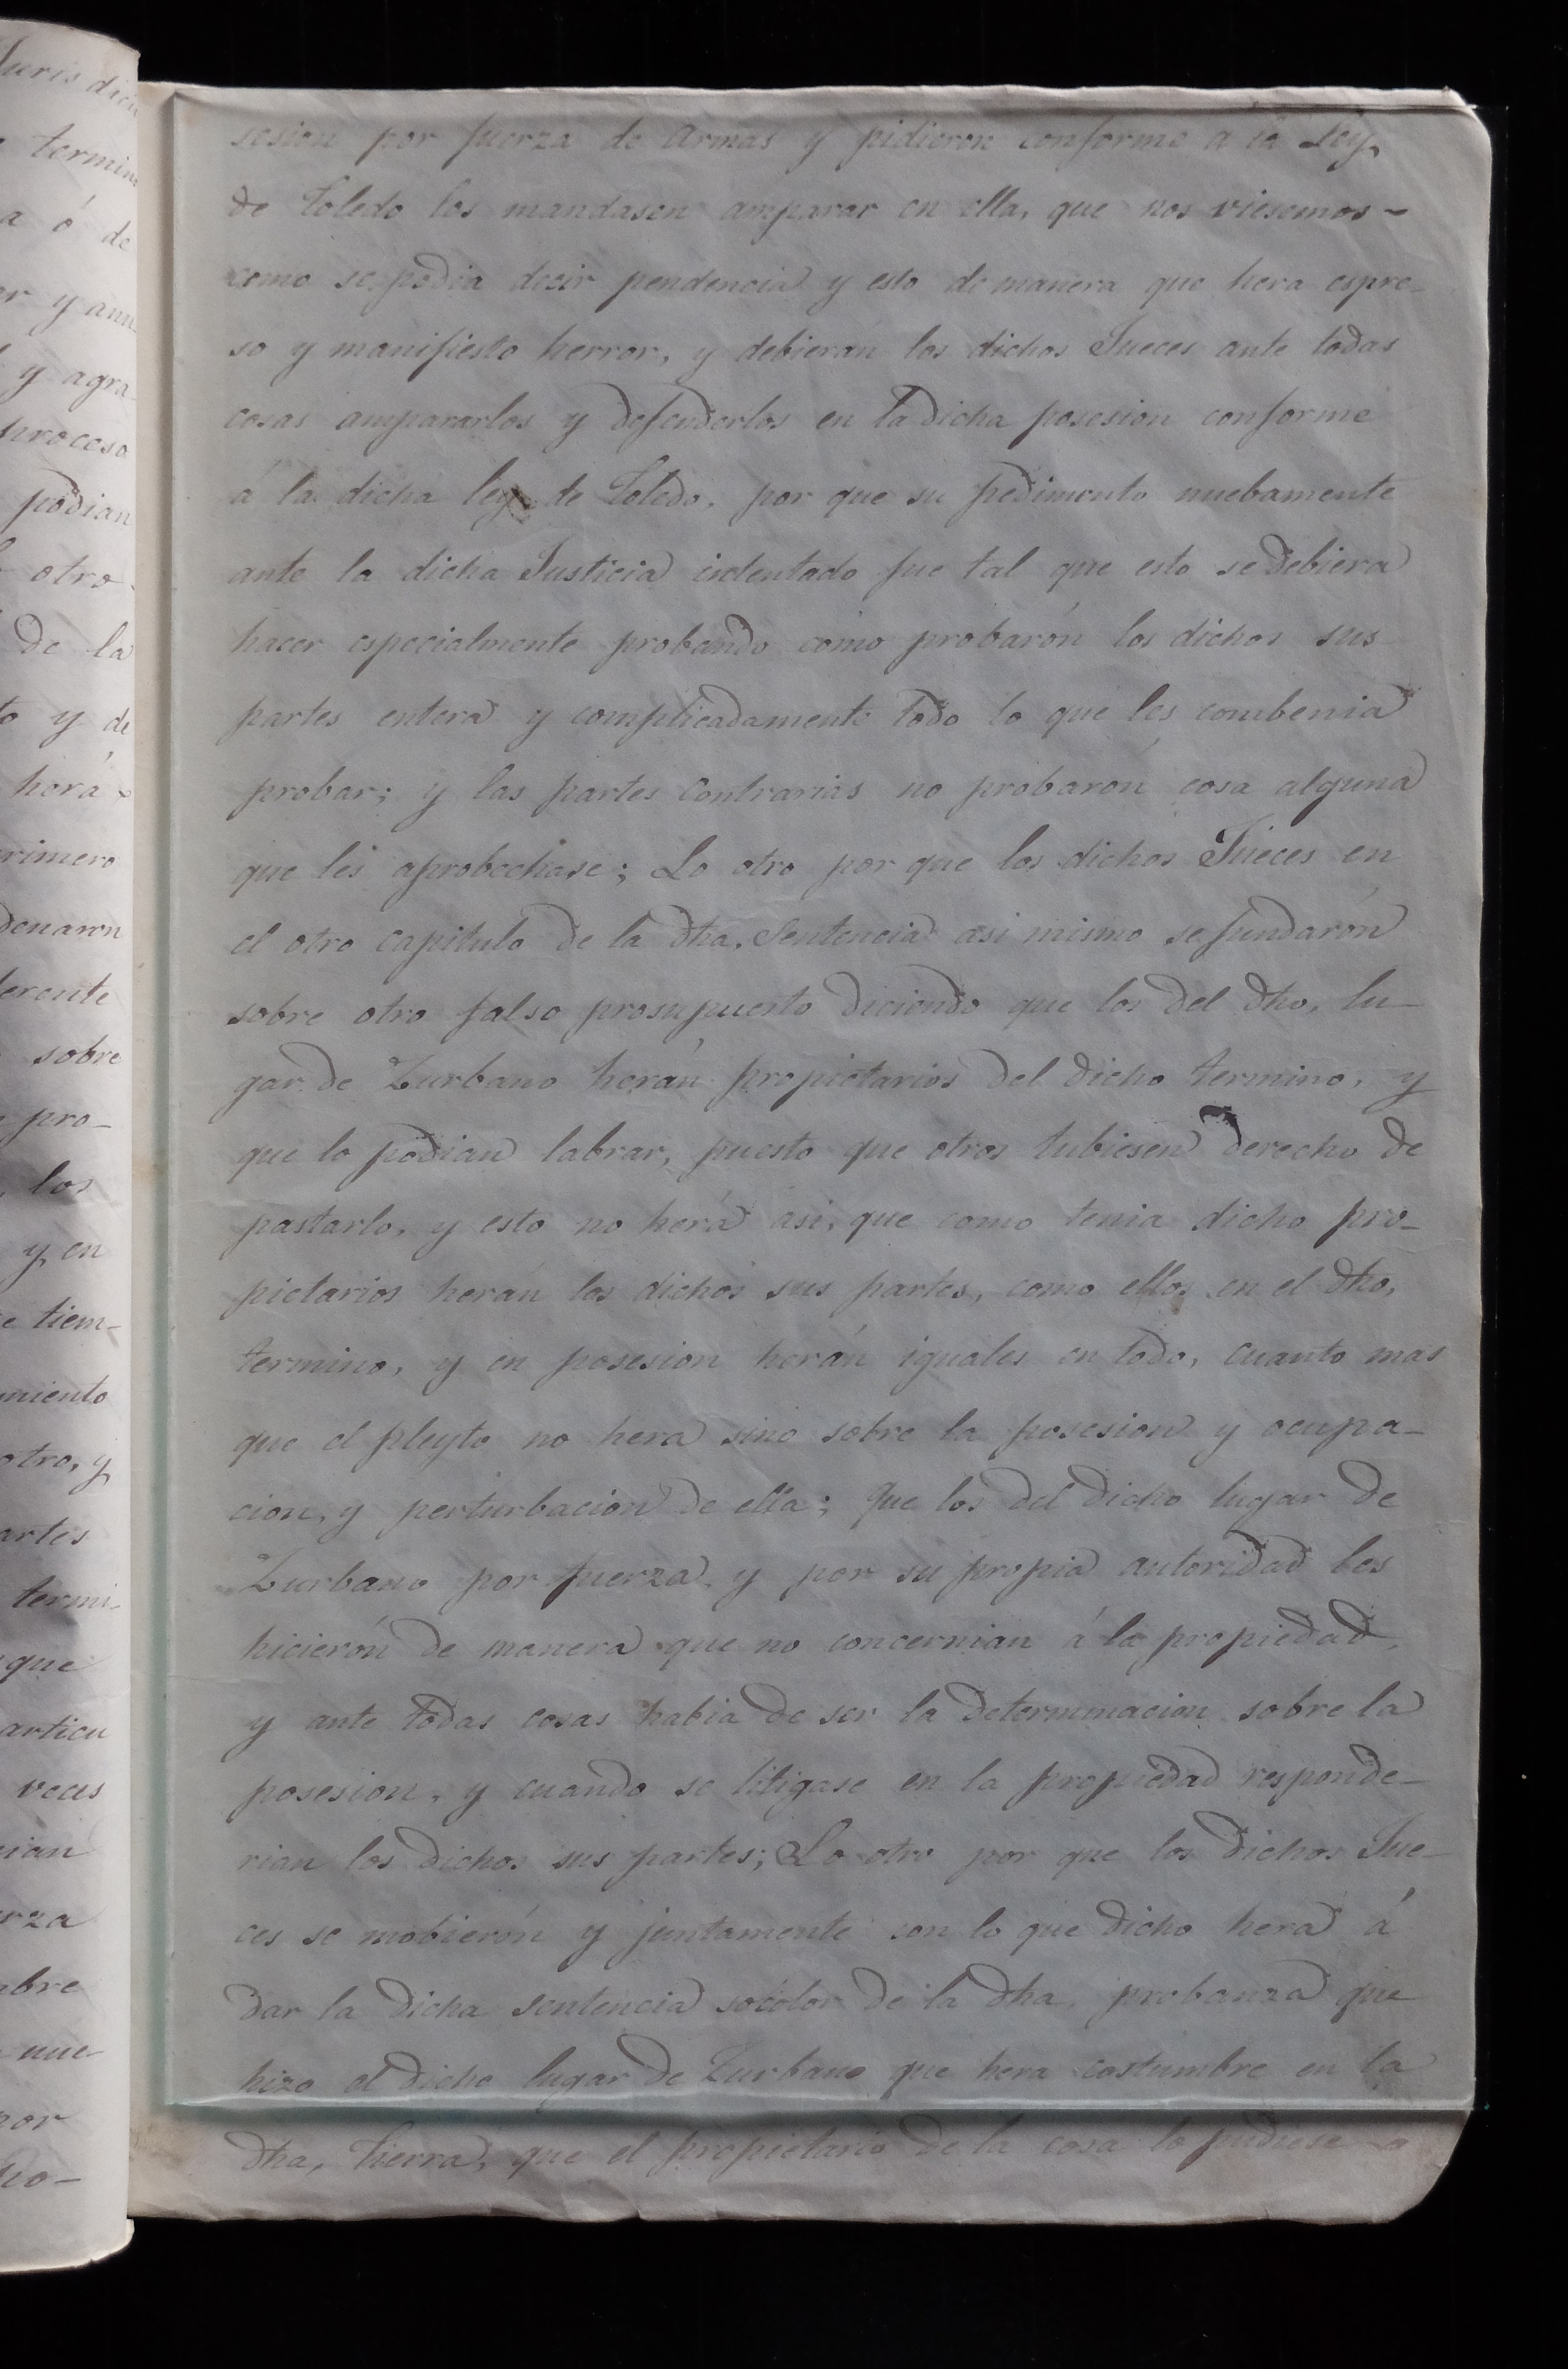 sesion por fuerza de armas y pidieron conforme a la Ley
de Toledo los mandasen amparar en ella, que nos viesemos-
como se podia decir pendencia y esto de manera que hera espre-
so y manifiesto herror, y debieran los dichos Jueces ante todas
cosas ampararlos y defenderlos en la dicha posesion conforme
á la dicha ley de Toledo, por que su pedimento nuebamente
ante la dicha Justicia intentado fue tal que esto se debiera
hacer especialmente probando como probarón los dichos sus
partes entera y complicadamente todo lo que les combenia
probar; y las partes contrarias no probarón cosa alguna
que les aprobechase; Lo otro por que los dichos Jueces en
el otro capitulo de la dha, Sentencia asi mismo se fundarón
sobre otro falso prosupuesto diciendo que los del dho, lu-
gar de Zurbano herán propietarios del dicho termino, y
que lo podian labrar, puesto que otros tubiesen derecho de
pastarlo, y esto no herá asi, que como tenia dicho pro-
pietarios herán los dichos sus partes, como ellos en el dho,
termino, y en posesion herán iguales en todo, cuanto mas
que el pleyto no hera sino sobre la posesion y ocupa-
cion, y perturbacion de ella; que los del dicho lugar de
Zurbano por fuerza, y por su propia autoridad les
hicierón de manera que no concernian á la propiedad,
y ante todas cosas habia de ser la determinacion sobre la
posesion, y cuando se litigase en la propiedad responde-
rian los dichos sus partes; Lo otro por que los dichos Jue-
ces se mobierón y juntamente son lo que dicho hera á
dar la dicha sentencia socolor de la dha, probanza que
hizo el dicho lugar de Zurbano que hera costumbre en la
dha, tierra, que el propietario de la cosa lo pudiese